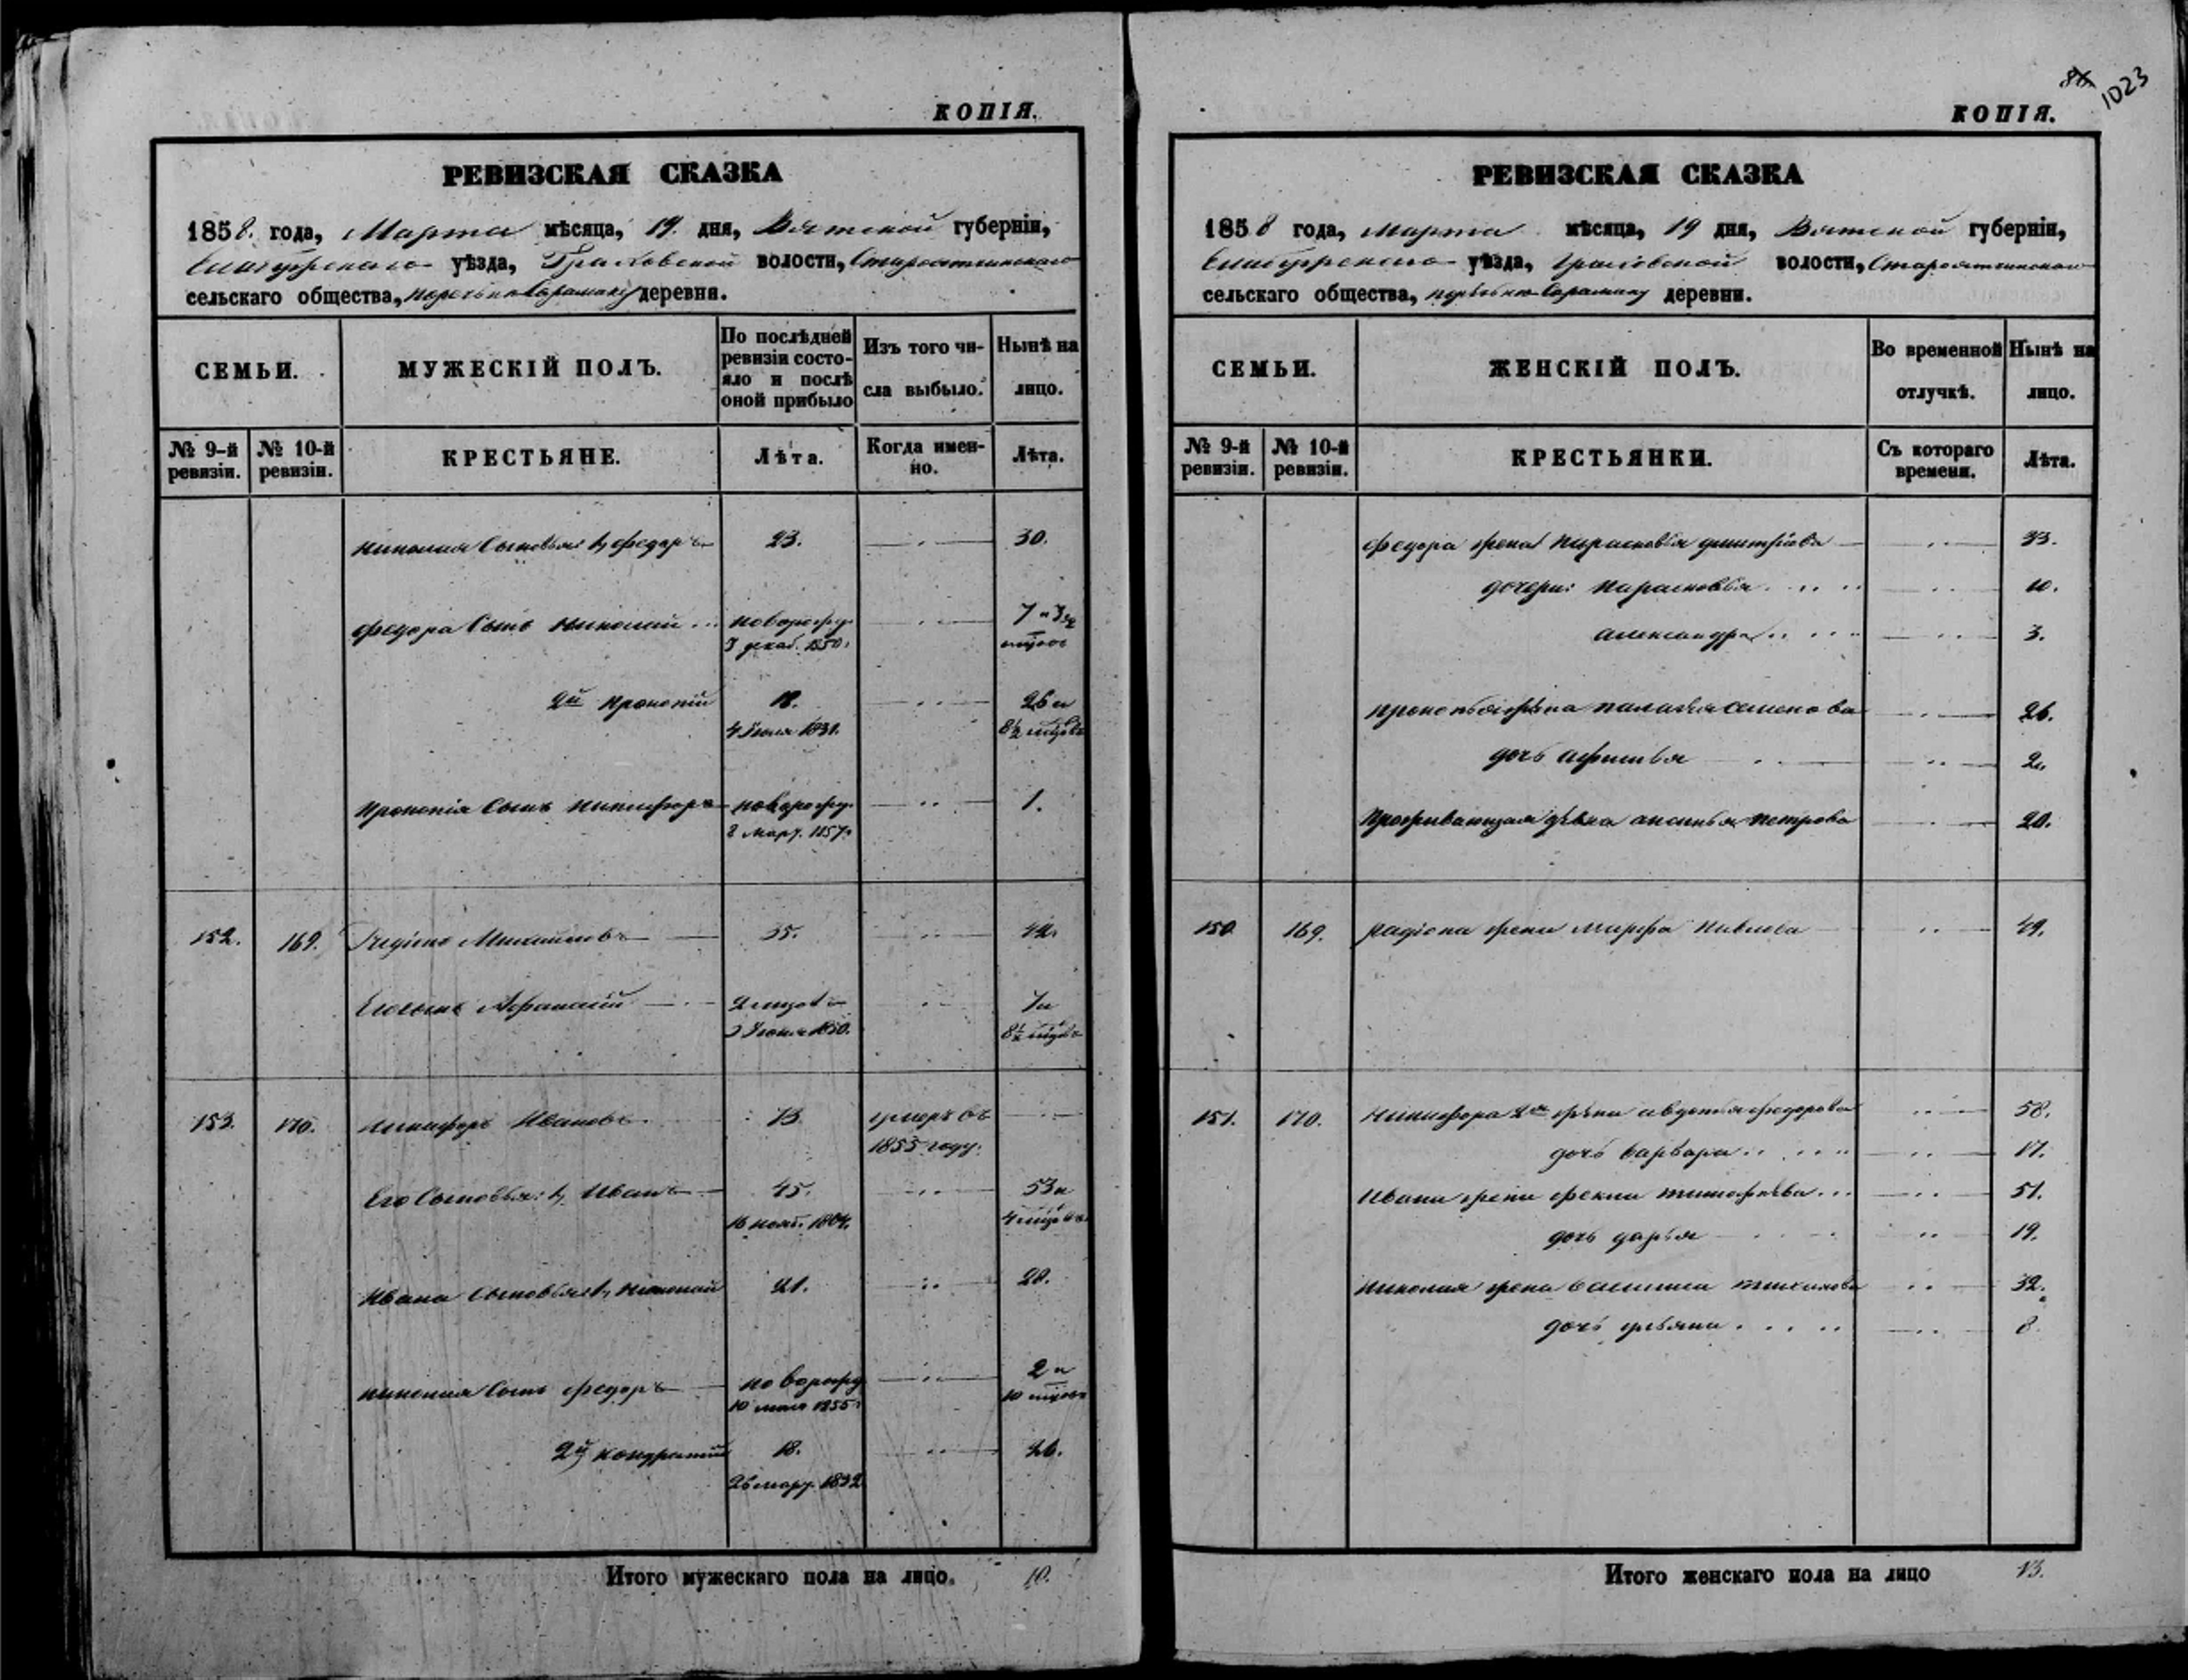 КОПІЯ.
РЕВИЗСКАЯ СКАЗКА
1858. года, Марта мѣсяца, 19. дня, Вятской губерніи,
Елабужскаго уѣзда, Граховской волости,
сельскаго общества, деревни.
СЕМЬИ.
МУЖЕСКІЙ ПОЛЪ.
По послѣдней
ревизіи состо-
яло и послѣ
оной прибыло
Изъ того чи-
сла выбыло.
Нынѣ на
лицо.
№ 9-й
ревизіи.
№ 10-й
ревизіи.
КРЕСТЬЯНЕ.
Лѣта.
Когда имен-
но.
Лѣта.
Николая Сыновья: 1, Федоръ 23. 30.
Федора Сынъ Николай новорожд. 7 и 3
декаб. 1850.
2й Прокопій 18. 26 и
4 Іюля 1831. 8½ мѣцовъ
Прокопія Сынъ Никифоръ новорожд. 1.
8 Март. 1857.
152. 169. Михайловъ 35. 42.
Его сынъ Афанасій 7 и
1850. 8½ мѣцовъ
153. 170. Никифоръ Ивановъ 73 умеръ въ
1855 году.
Его Сыновья: 1, Иванъ 45. 53 и
16 нояб. 1804. 4 мѣцовъ
Ивана Сыновья 1, Николай 21. 28.
Николая Сынъ Федоръ новорожд 2 и
10 мая 1855 10 мѣцовъ
2й Кондратій 18. 26.
26 март. 1832
Итого мужескаго пола на лицо. 10.
1023
КОПІЯ.
РЕВИЗСКАЯ СКАЗКА
1858 года, Марта мѣсяца, 19 дня, Вятской губерніи,
Елабужскаго уѣзда, Граховской волости,
сельскаго общества, деревни.
СЕМЬИ.
ЖЕНСКІЙ ПОЛЪ.
Во временной
отлучкѣ.
Нынѣ на
лицо.
№ 9-й
ревизіи.
№ 10-й
ревизіи.
КРЕСТЬЯНКИ.
Съ котораго
времени.
Лѣта.
Федора жена Парасковья Дмитріева 33.
дочери: Парасковья 10.
Александра 3.
Прокопья жена Палагья Семенова 26.
дочь Афимья 2.
Проживающая дѣвка Аксинья Петрова 20.
150 169. Радіона жена Марфа Павлова 49.
151. 170. Никифора 2я жена Авдотья Федорова 58.
дочь Варвара 17.
Ивана жена Фекла Тимофѣева 51.
дочь Дарья 19.
Николая жена Василиса 32.
дочь Ульяна 8.
Итого женскаго пола на лицо 13.